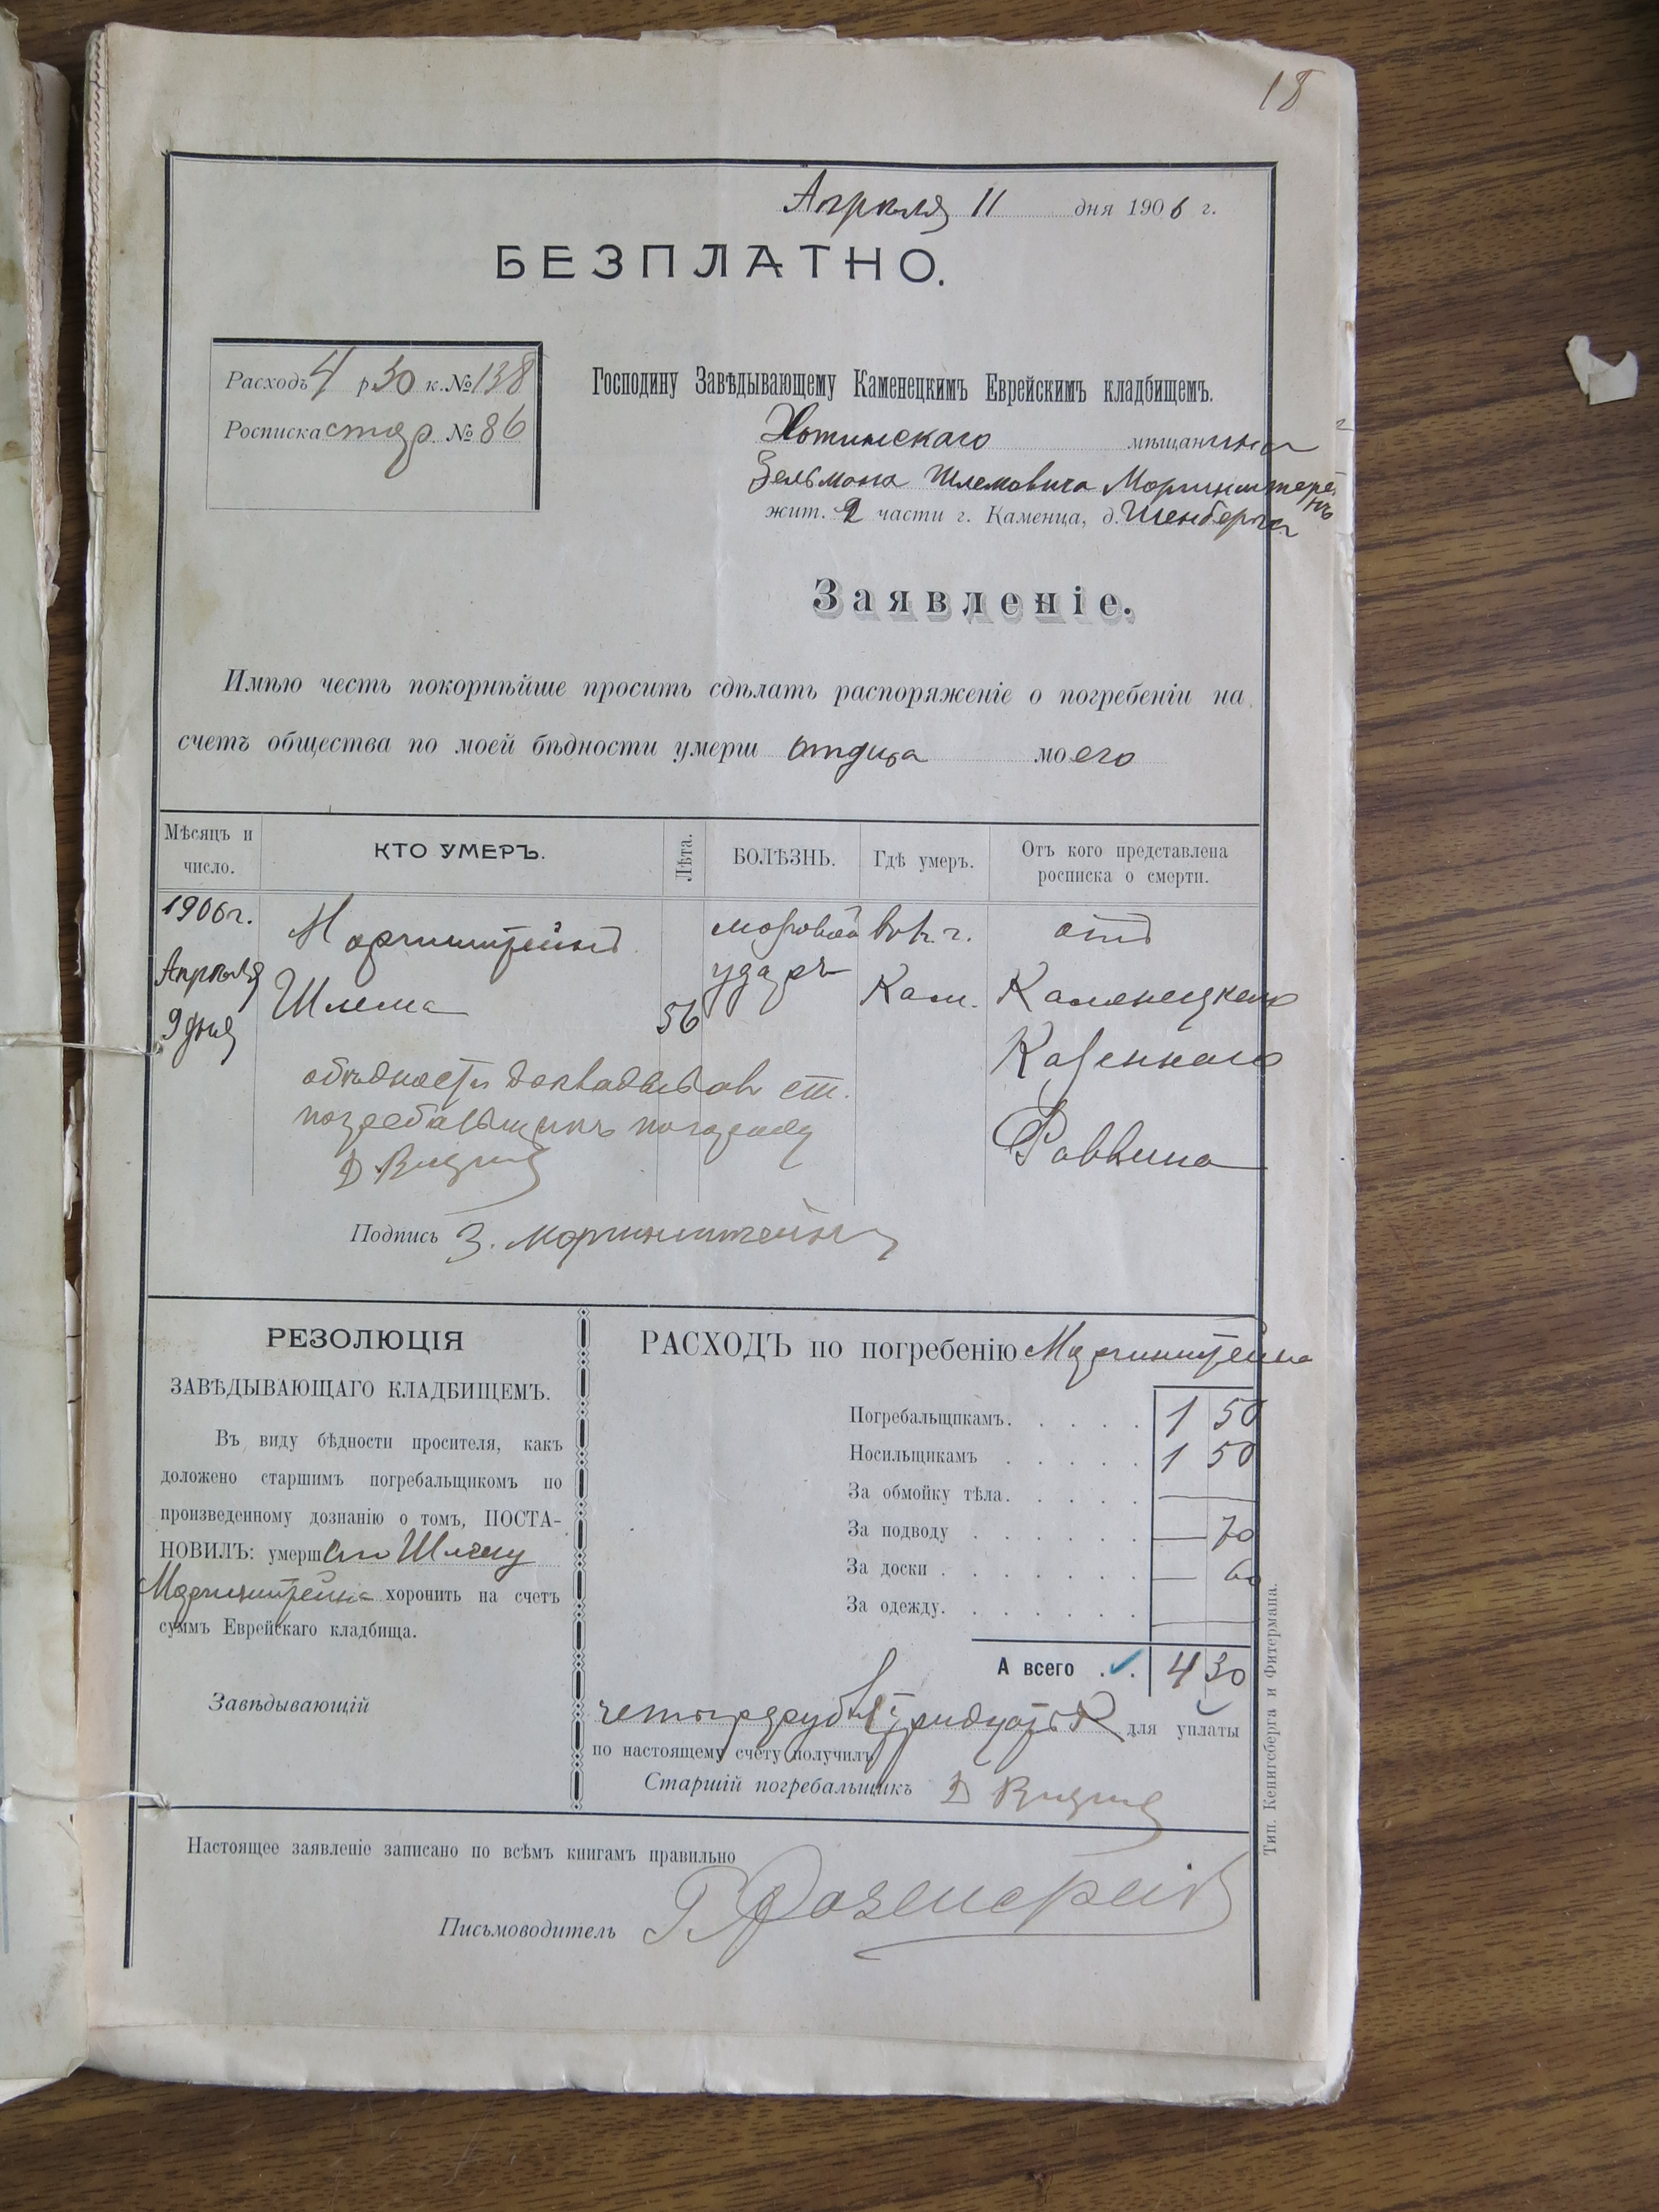 18
Апрѣля 11 дня 1906 г.
БЕЗПЛАТНО.
Расходъ 4 р 30 к. № 138
Росписка стар. № 86
Господину Завѣдывающему Каменецкимъ Еврейскимъ кладбищемъ.
Хотинскаго мѣщанина
Зельмана Шлемовича
жит. 2 части г. Каменца, д. Шенберга
Заявленіе.
Имѣю честь покорнѣйше просить сдѣлать распоряженіе о погребеніи на
счетъ общества по моей бѣдности умерш отдца моего
Мѣсяцъ и число. КТО УМЕРЪ. Лѣта. БОЛѢЗНЬ. Гдѣ умеръ. Отъ кого представлена росписка о смерти.
1906 г. Моргинштейнъ въ г. отъ
Апрѣля Шлема 56 ударъ Кам. Каменецкаго
9 дня Казеннаго
Раввина
обѣдности докладывалъ ст.
погребальщикъ
Подпись З. Моргинштейнъ
РЕЗОЛЮЦІЯ
ЗАВѢДЫВАЮЩАГО КЛАДБИЩЕМЪ.
Въ виду бѣдности просителя, какъ
доложено старшимъ погребальщикомъ по
произведенному дознанію о томъ, ПОСТА-
НОВИЛЪ: умерш Шлему
Моргинштейна хоронить на счетъ
суммъ Еврейскаго кладбища.
Завѣдывающій
РАСХОДЪ по погребенію Моргинштейна
Погребальщикамъ. 1 50
Носильщикамъ 1 50
За обмойку тѣла. —
За подводу — 70
За доски — 60
За одежду. —
А всего 4 30
четыре руб. тридцать к для уплаты
по настоящему счету получилъ
Старшій погребальщикъ
Настоящее заявленіе записано по всѣмъ книгамъ правильно
Письмоводитель
Тип. Кенигсберга и Фитермана.